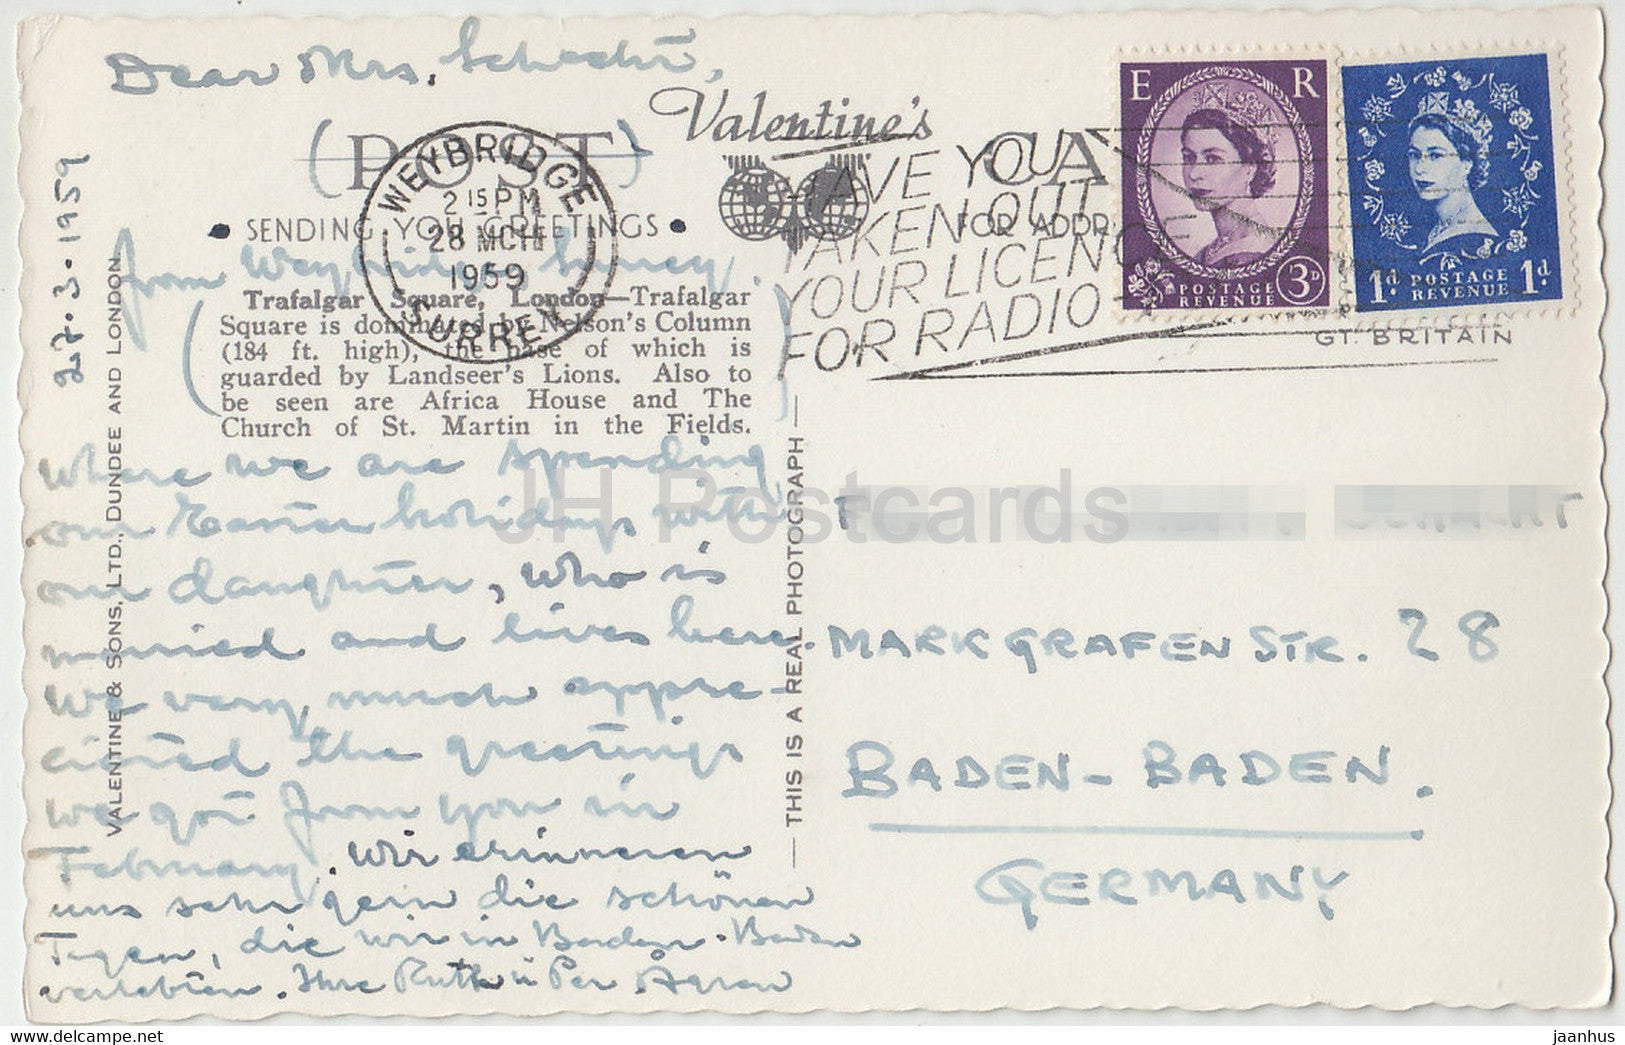 Dear Mrs.
27.3.1959
(POST) CA
Valentine's
SENDING YOU GREETINGS
FOR ADDR
WEYBRIDGE
2 15 PM
28 MCH
1959
SURREY
AVE YOU
TAKEN OUT
YOUR LICENC
FOR RADIO
E R
3D
POSTAGE
REVENUE
1d POSTAGE 1d
REVENUE
GT. BRITAIN
from Weybridge, Surrey.
Trafalgar Square, London—Trafalgar
Square is dominated by Nelson's Column
(184 ft. high), the base of which is
guarded by Landseer's Lions. Also to
be seen are Africa House and The
Church of St. Martin in the Fields.
where we are spending
our Easter holidays with
our daughter, who is
married and lives here.
We very much appre-
ciated the greetings
we got from you in
February. Wir erinneren
uns sehr gern die schönen
Tagen, die wir in Baden-Baden
verlebten. Ihre Ruth u Per Ågren
VALENTINE & SONS, LTD., DUNDEE AND LONDON.
THIS IS A REAL PHOTOGRAPH
MARKGRAFEN STR. 28
BADEN-BADEN.
GERMANY
JH Postcards
www.delcampe.net
jaanhus